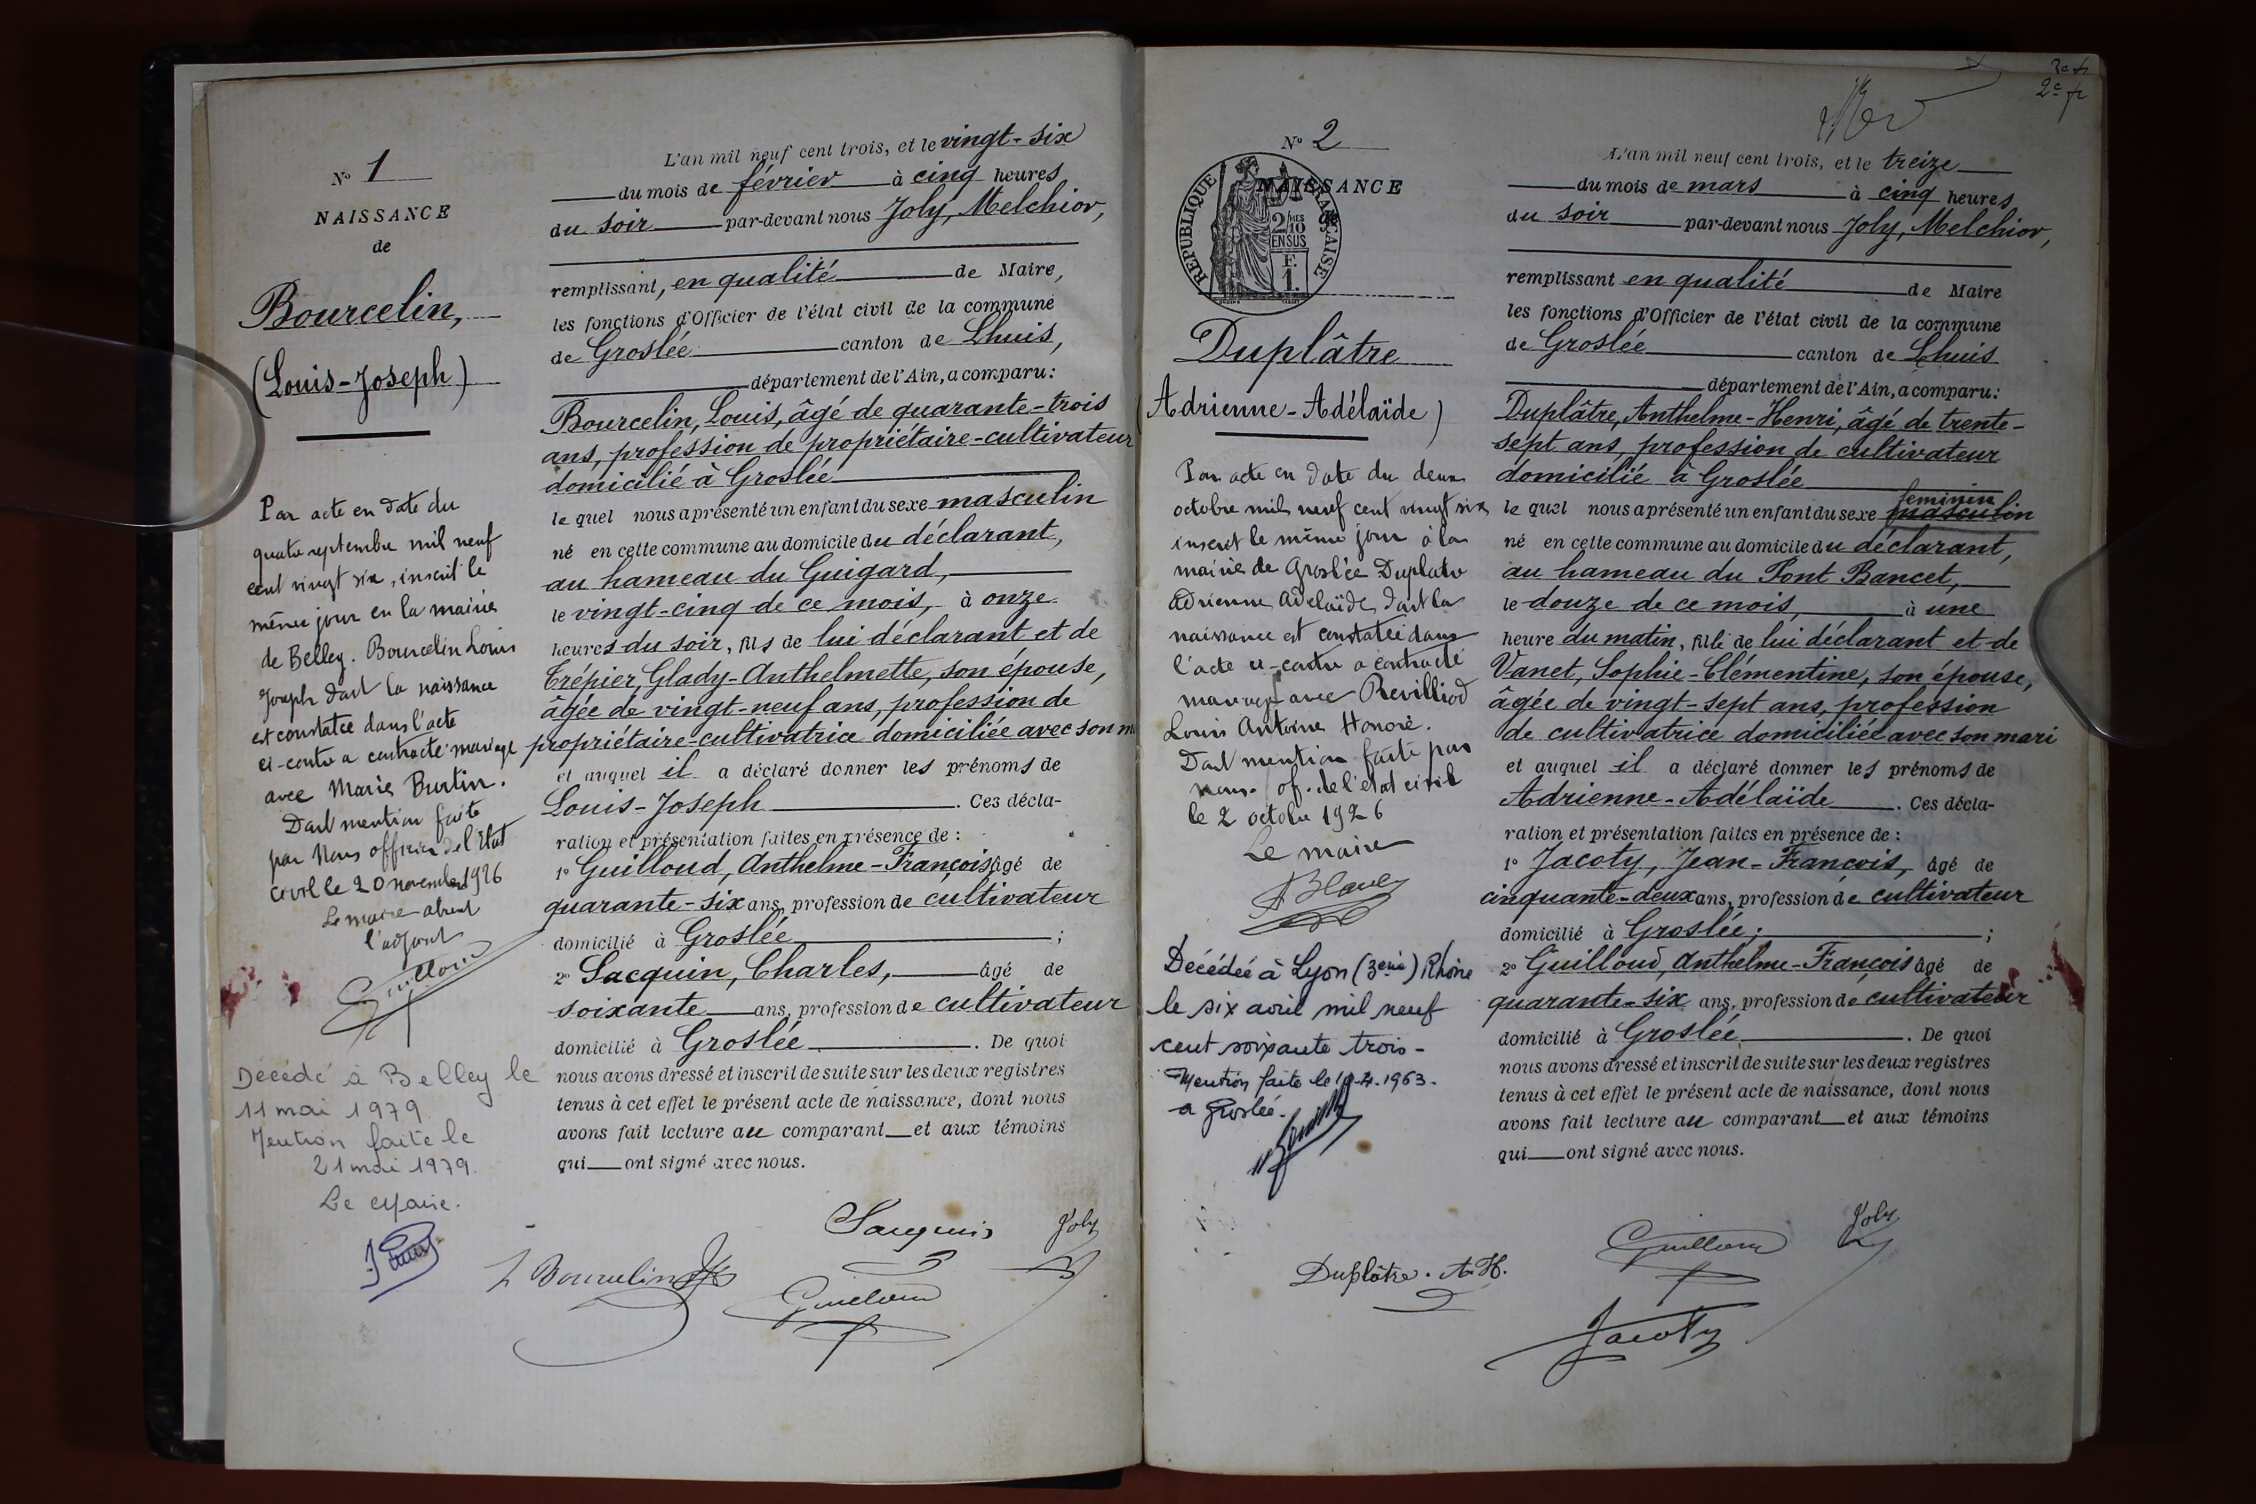 N° 1
NAISSANCE
de
Bourcelin,
(Louis-Joseph)
Par acte en date du
quatre septembre mil neuf
cent vingt six, inscrit le
même jour en la mairie
de Belley. Bourcelin Louis
Joseph dont la naissance
est constatée dans l'acte
ci-contre a contracté mariage
avec Marie Burtin.
Dont mention faite
par Nous officier de l'Etat
civil le 20 novembre 1926
Le maire absent
l'adjoint
Guilloud
Décédé à Belley le
11 mai 1979
Mention faite le
21 mai 1979.
Le Maire.
L'an mil neuf cent trois, et le vingt-six
du mois de février à cinq heures
du soir par-devant nous Joly, Melchior,
remplissant, en qualité de Maire,
les fonctions d'Officier de l'état civil de la commune
de Groslée canton de Lhuis,
département de l'Ain, a comparu:
Bourcelin, Louis, âgé de quarante-trois
ans, profession de propriétaire-cultivateur
domicilié à Groslée
le quel nous a présenté un enfant du sexe masculin
né en cette commune au domicile du déclarant,
au hameau du Guigard,
le vingt-cinq de ce mois, à onze
heures du soir, fils de lui déclarant et de
Trépier Glady-Anthelmette, son épouse,
âgée de vingt-neuf ans, profession de
propriétaire-cultivatrice domiciliée avec son m
et auquel il a déclaré donner les prénoms de
Louis-Joseph. Ces décla-
ration et présentation faites en présence de :
1° Guilloud, Anthelme-François, âgé de
quarante-six ans, profession de cultivateur
domicilié à Groslée ;
2° Sacquin, Charles, âgé de
soixante ans, profession de cultivateur
domicilié à Groslée. De quoi
nous avons dressé et inscrit de suite sur les deux registres
tenus à cet effet le présent acte de naissance, dont nous
avons fait lecture au comparant et aux témoins
qui ont signé avec nous.
Sacquin Joly
L Bourcelin
Guilloud
2e
N° 2
NAISSANCE
de
REPUBLIQUE FRANÇAISE
2/10MES
EN SUS
F.
1.
Duplâtre
(Adrienne-Adélaïde)
Par acte en date du deux
octobre mil neuf cent vingt six
inscrit le même jour à la
mairie de Groslée Duplatre
Adrienne Adelaïde dont la
naissance est constatée dans
l'acte ci-contre a contracté
mariage avec Revilliod
Louis Antoine Honoré.
Dont mention faite par
nous of. de l'état civil
le 2 octobre 1926
Le maire
Décédée à Lyon (3eme) Rhône
le six avril mil neuf
cent soixante trois-
Mention faite le 4.1963.
a Groslée.
L'an mil neuf cent trois, et le treize
du mois de mars à cinq heures
du soir par-devant nous Joly, Melchior,
remplissant en qualité de Maire
les fonctions d'Officier de l'état civil de la commune
de Groslée canton de Lhuis
département de l'Ain, a comparu:
Duplâtre, Anthelme-Henri, âgé de trente-
sept ans, profession de cultivateur
domicilié à Groslée
feminin
le quel nous a présenté un enfant du sexe masculin
né en cette commune au domicile du déclarant,
au hameau du Pont Bancet,
le douze de ce mois, à une
heure du matin, fille de lui déclarant et de
Vanet, Sophie-Clémentine, son épouse,
âgée de vingt-sept ans, profession
de cultivatrice domiciliée avec son mari
et auquel il a déclaré donner les prénoms de
Adrienne-Adélaïde. Ces décla-
ration et présentation faites en présence de :
1° Jacoty, Jean-François, âgé de
cinquante-deux ans, profession de cultivateur
domicilié à Groslée ;
2° Guilloud, Anthelme-François âgé de
quarante-six ans, profession de cultivateur
domicilié à Groslée. De quoi
nous avons dressé et inscrit de suite sur les deux registres
tenus à cet effet le présent acte de naissance, dont nous
avons fait lecture au comparant et aux témoins
qui ont signé avec nous.
Joly
Guilloud
Duplâtre. A.H.
Jacoty